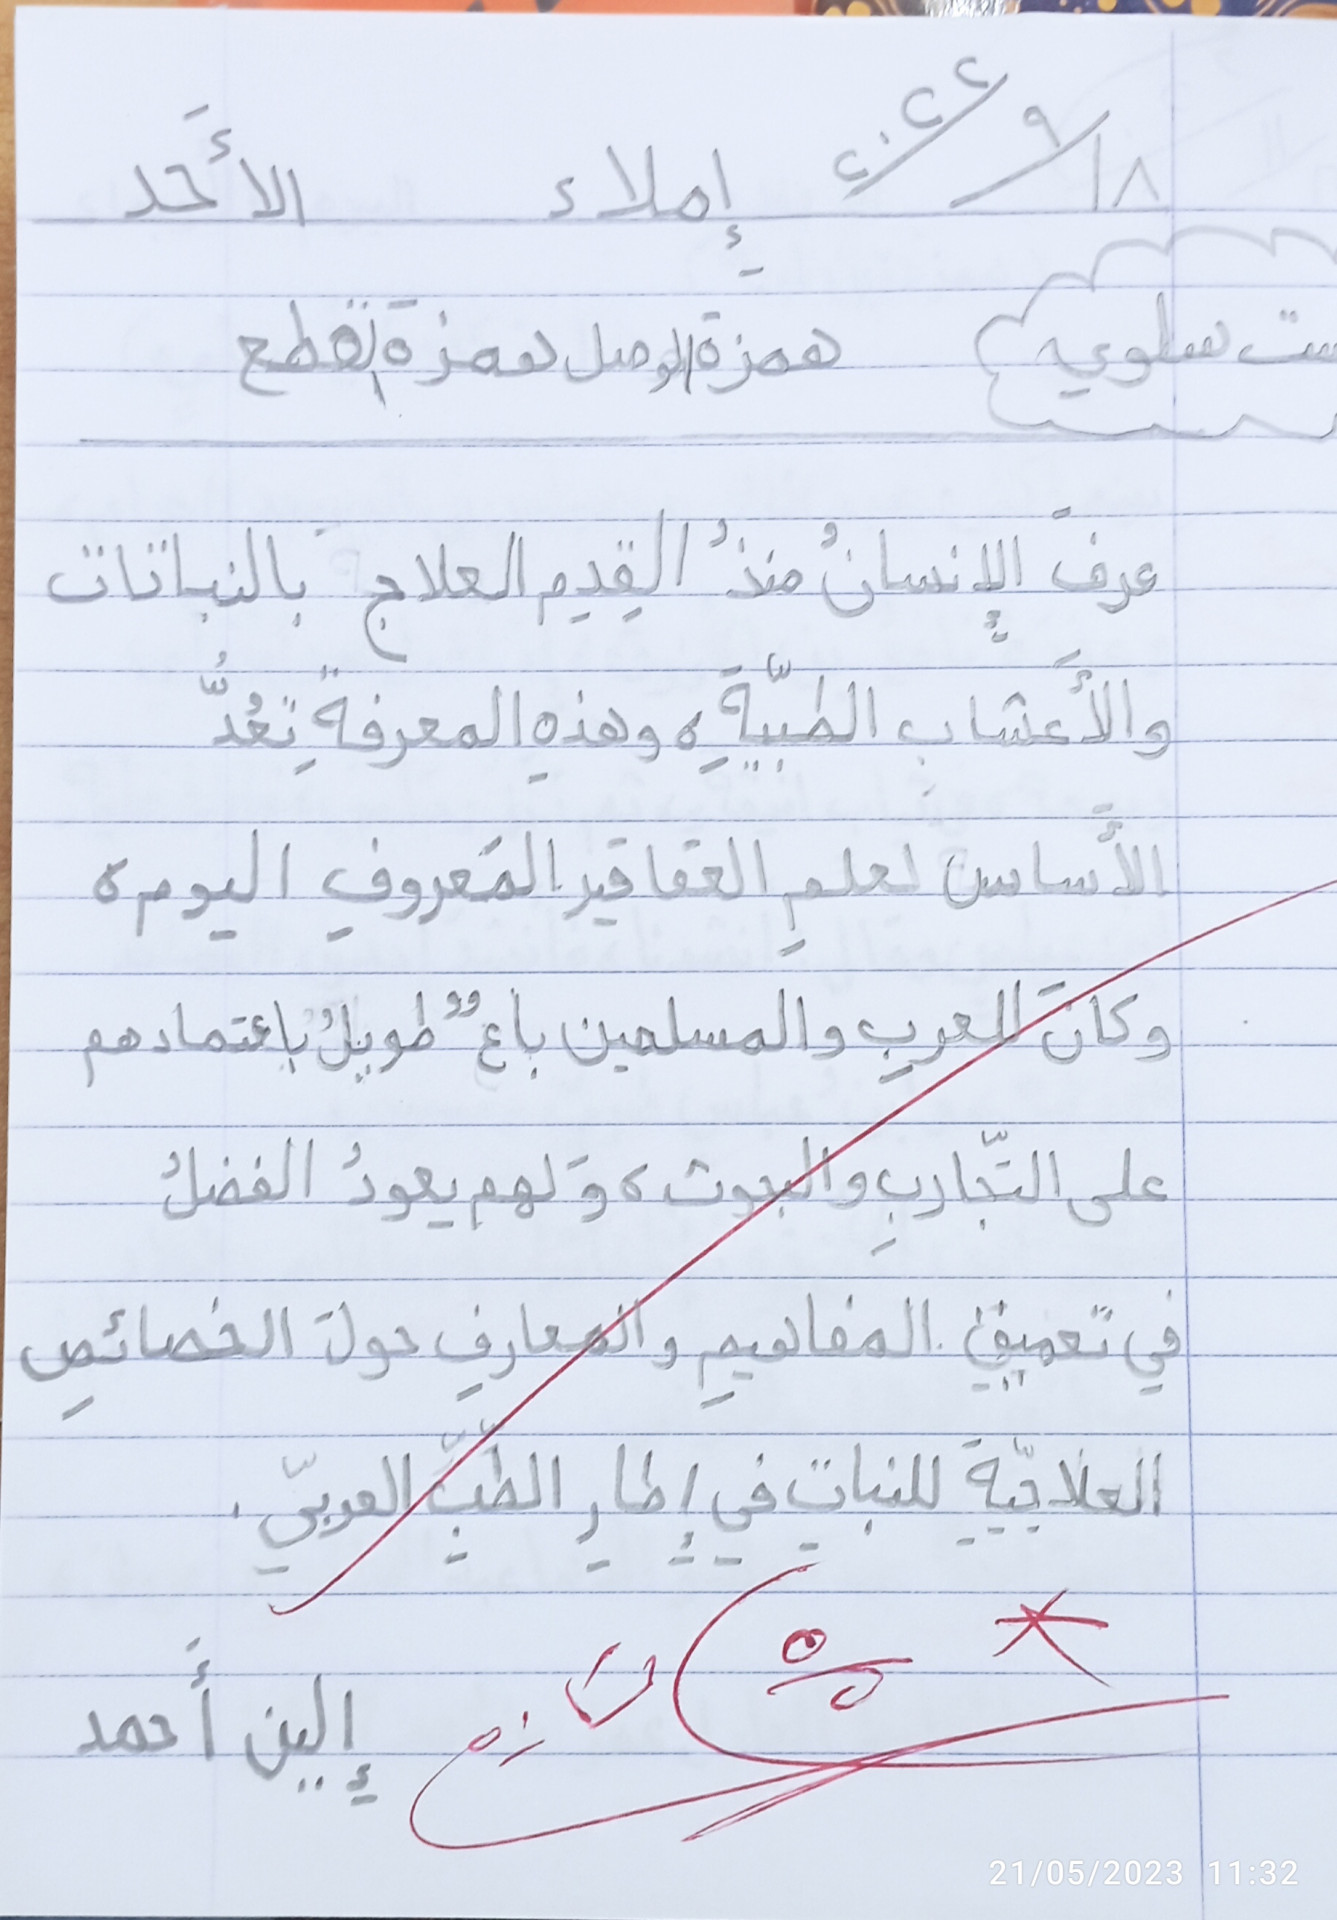 ١٨/٩/٢٠٢٢ إِملاء الأَحَد
ست سلوى همزة الوصل همزة القطع
عرفَ الإِنسانُ منذُ القِدِم العلاج بالنباتات
والأَعشابِ الطبيَّةِ، وهذهِ المعرفةُ تِعُدُّ
الأَساس لعلمِ العقاقير المَعروفِ اليوم،
وكانَ للعربِ والمسلمين باعٌ طويلٌ باعتمادهم
على التَّجاربِ والبحوث، وَلهم يعودُ الفضلُ
في تعميقِ المفاهيمِ والمعارفِ حولَ الخصائصِ
العلاجيَّةِ للنباتِ في إِطارِ الطبِّ العربيِّ.
إِلين أَحمد
21/05/2023 11:32